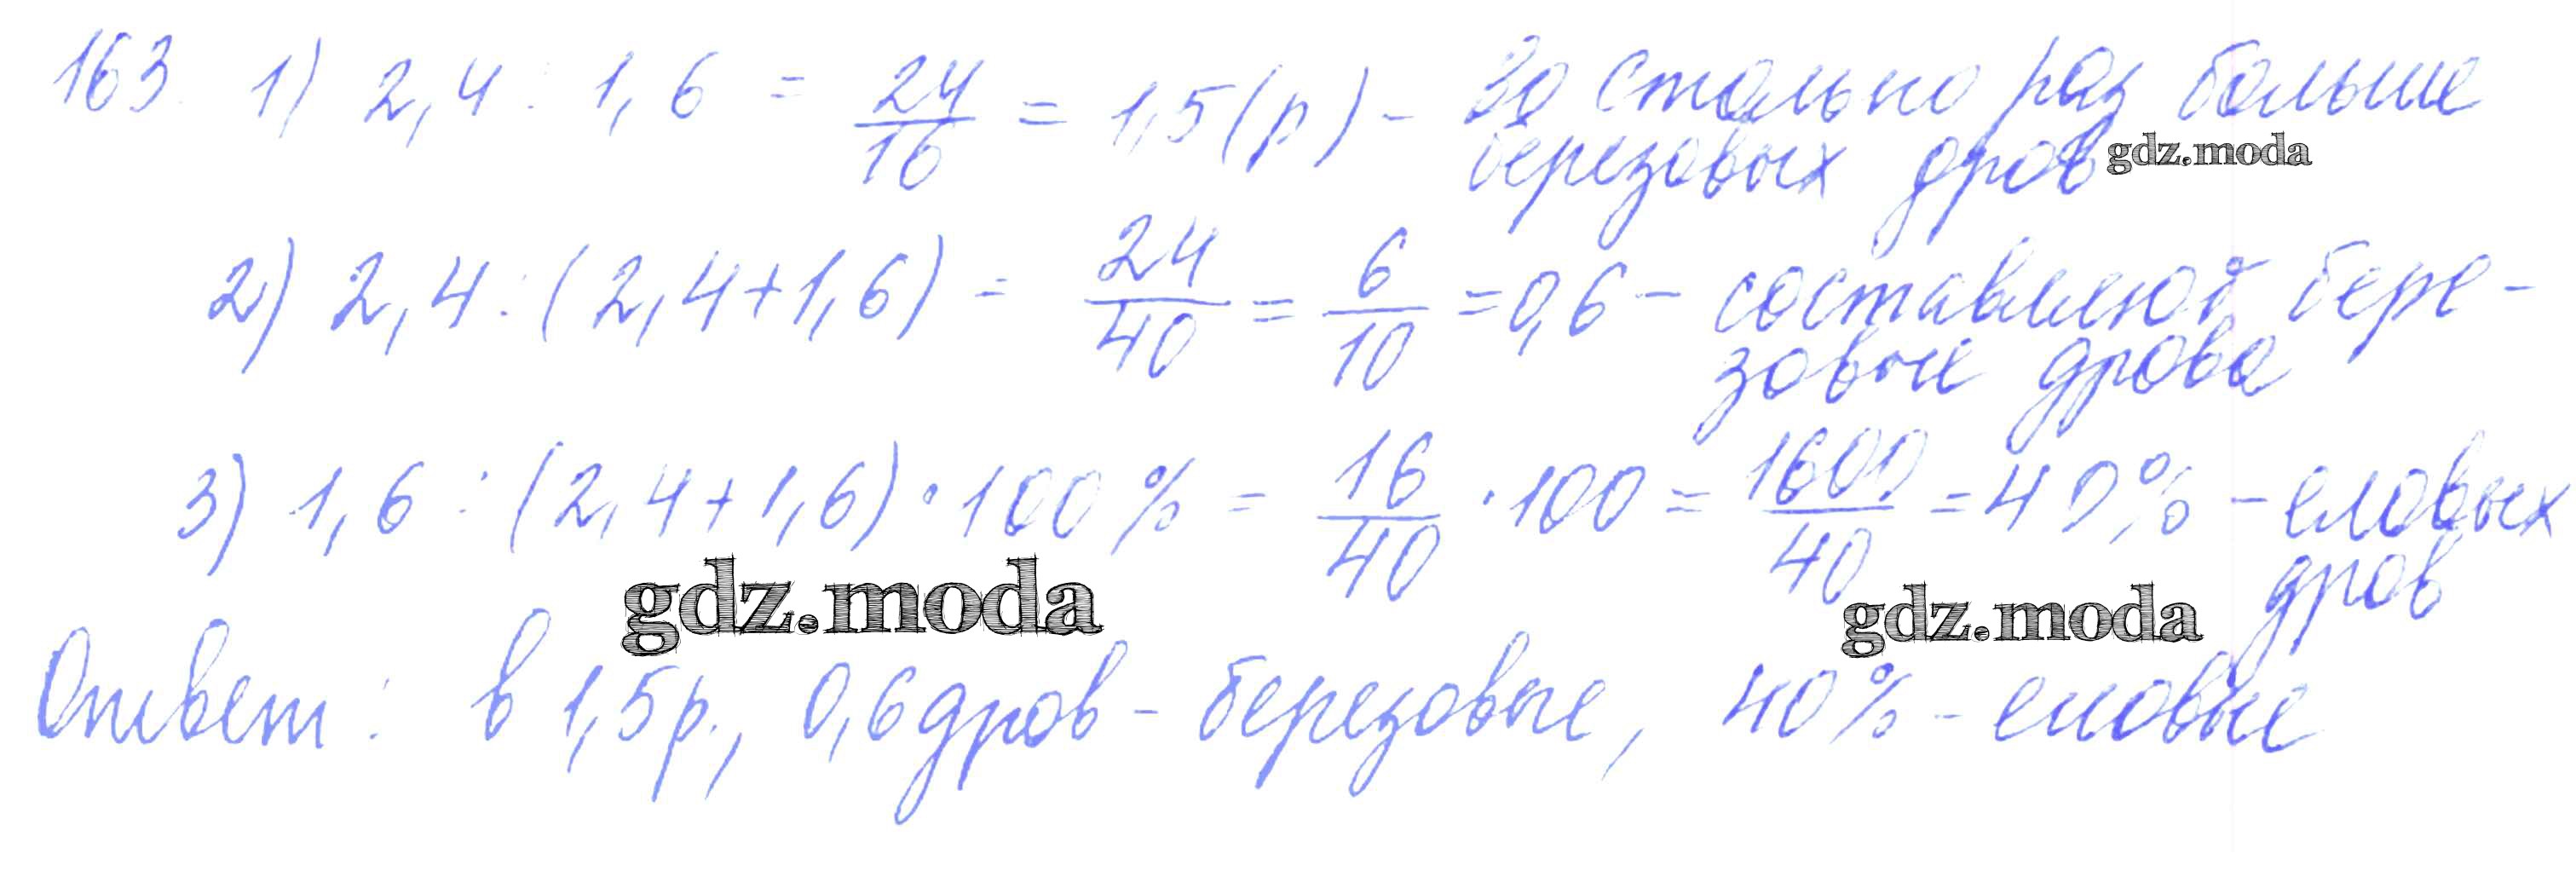 163. 1) 2,4 : 1,6 = 24/16 = 1,5 (р) - Во столько раз больше
березовых дров
gdz.moda
2) 2,4 : (2,4+1,6) = 24/40 = 6/10 = 0,6 - составляют бере-
зовые дрова
3) 1,6 : (2,4+1,6) · 100 % = 16/40 · 100 = 1600/40 = 40% - еловых
дров
gdz.moda
gdz.moda
Ответ: в 1,5 р., 0,6 дров - березовые, 40% - еловые